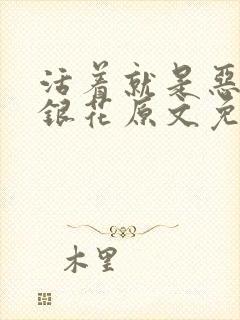 活着就是恶
銀花原文免
木里